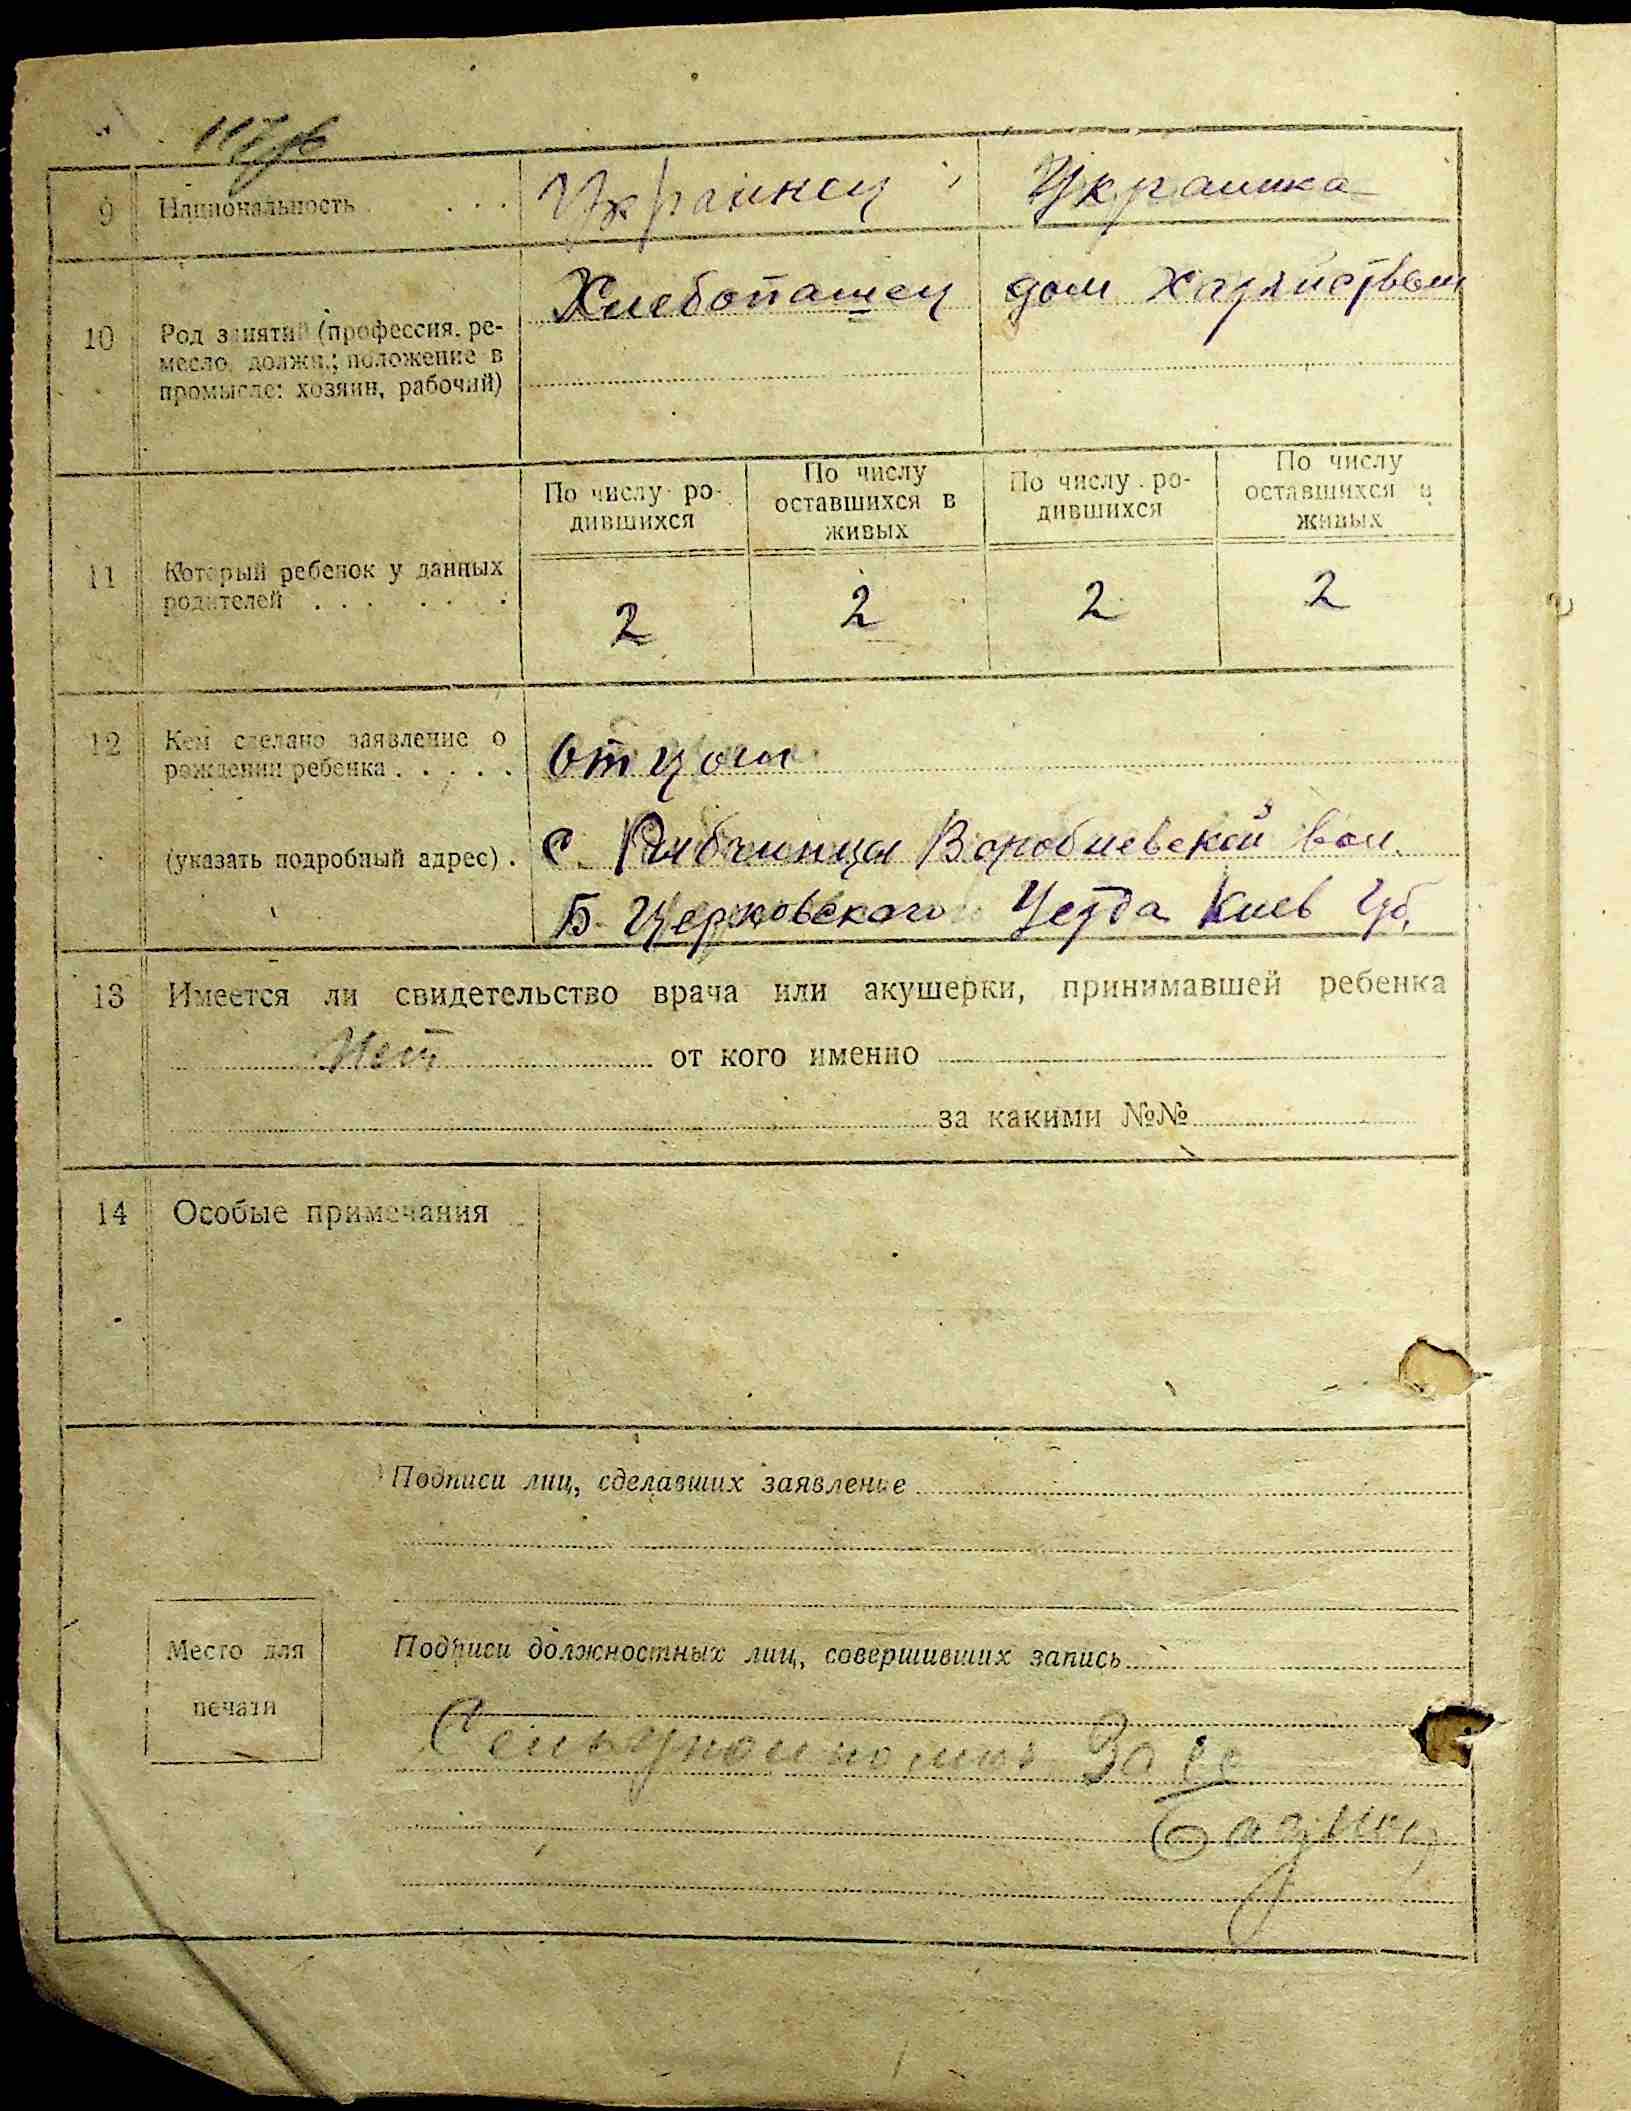 9 Национальность . . . . Украинец Украинка
10 Род занятий (профессия, ре-
месло, должн.; положение в
промысле: хозяин, рабочий)
Хлебопашец дом Хазяйством
По числу ро-
дившихся
По числу
оставшихся в
живых
По числу ро-
дившихся
По числу
оставшихся в
живых
11 Который ребенок у данных
родителей . . . . . .
2 2 2 2
12 Кем сделано заявление о
рождении ребенка . . . . .
отцом
(указать подробный адрес) . с. Воробиевской вол.
Б. Церковского Уезда Киев Губ.
13 Имеется ли свидетельство врача или акушерки, принимавшей ребенка
Нет от кого именно
за какими №№
14 Особые примечания
Подписи лиц, сделавших заявление
Место для
печати
Подписи должностных лиц, совершивших запись